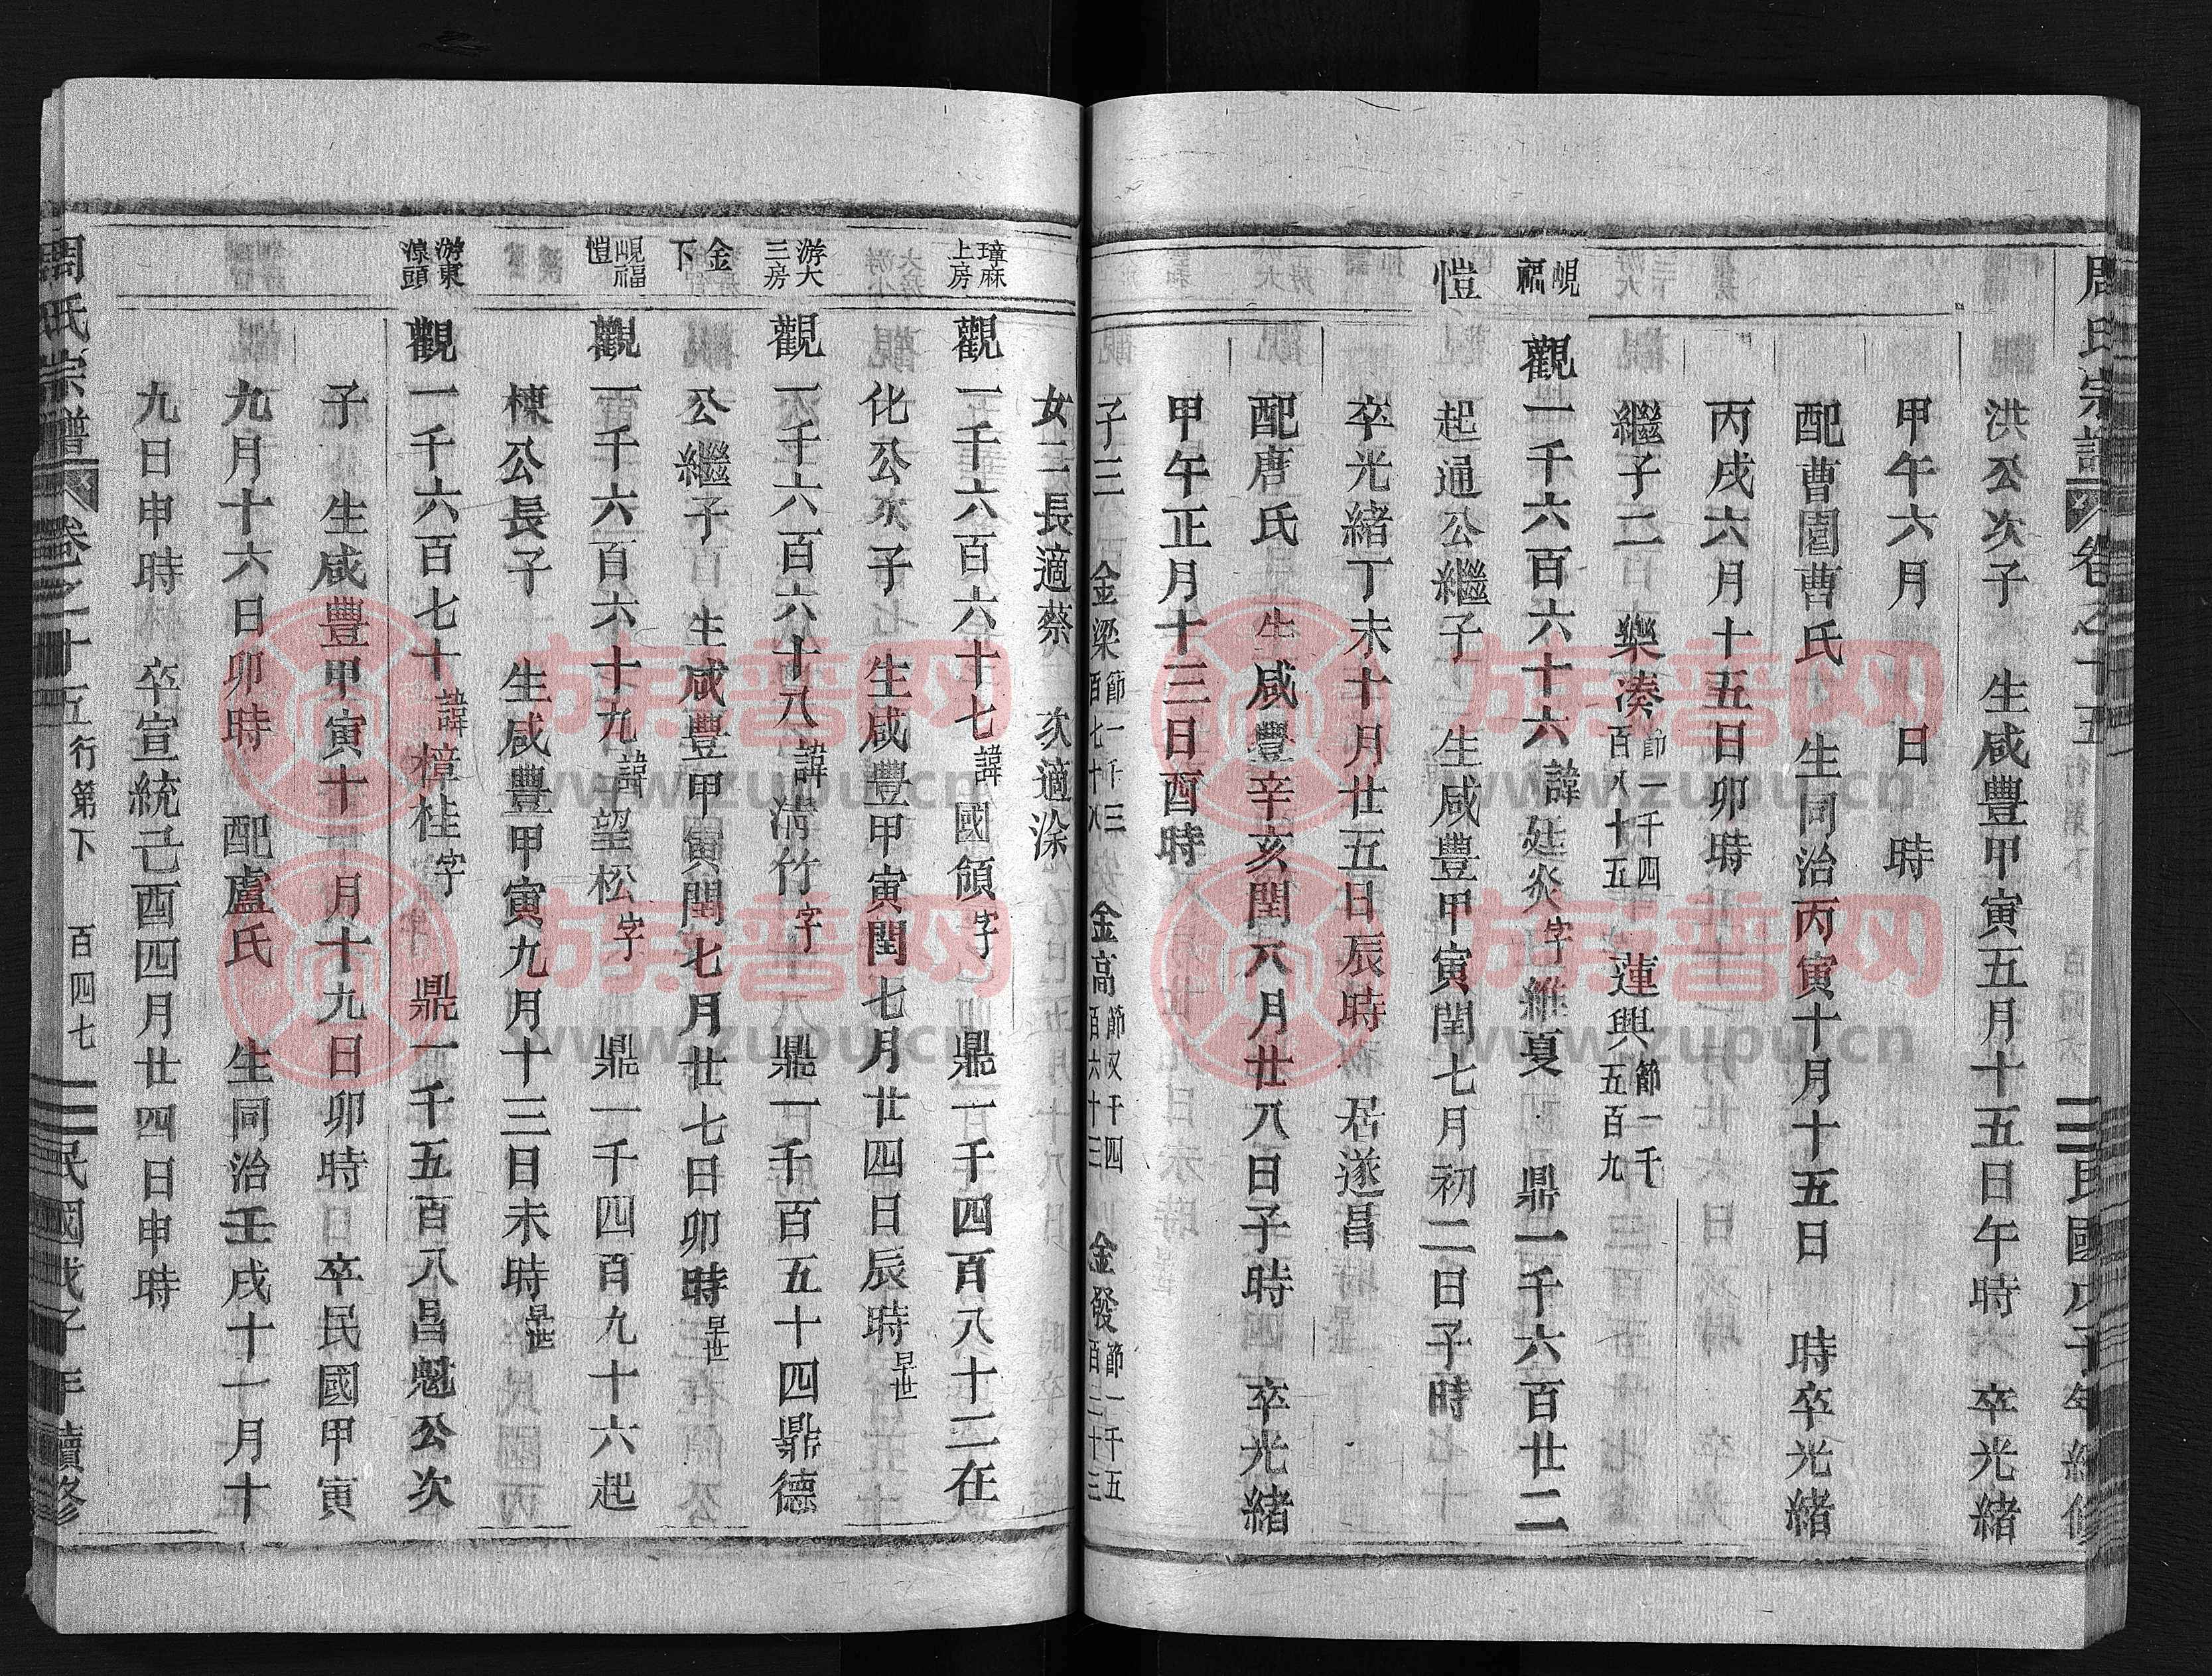 周氏宗譜 卷之十五 行第下 民國戊子年續修
洪公次子 生咸豐甲寅五月十五日午時 卒光緒
甲午六月 日 時
配曹園曹氏 生同治丙寅十月十五日 時卒光緒
丙戌六月十五日卯時
繼子二 樂湊節一千四百八十五 蓮興節一千五百九
峴福愷
觀一千六百六十六諱廷炎字維夏 鼎一千六百廿二
起通公繼子 生咸豐甲寅閏七月初二日子時
卒光緒丁未十月廿五日辰時 居遂昌
配唐氏 生咸豐辛亥閏八月廿八日子時 卒光緒
甲午正月十三日酉時
子三 金梁節一千三百七十八 金高節又千四百六十三 金發節一千五百二十三
女二長適蔡 次適涂
璋麻上房
觀一千六百六十七諱國頒字 鼎一千四百八十二在
化公次子 生咸豐甲寅閏七月廿四日辰時早世
游大三房
觀一千六百六十八諱清竹字 鼎一千百五十四鼎德
金下
公繼子 生咸豐甲寅閏七月廿七日卯時早世
峴福愷
觀一千六百六十九諱望松字 鼎一千四百九十六起
棟公長子 生咸豐甲寅九月十三日未時早世
游東源頭
觀一千六百七十諱樟桂字 鼎一千五百八昌魁公次
子 生咸豐甲寅十一月十九日卯時 卒民國甲寅
九月十六日卯時 配盧氏 生同治壬戌十一月十
九日申時 卒宣統己酉四月廿四日申時
周氏宗譜 卷之十五 行第下 百四七 民國戊子年續修
族譜网
www.zupu.cn
族譜网
www.zupu.cn
族譜网
www.zupu.cn
族譜网
www.zupu.cn